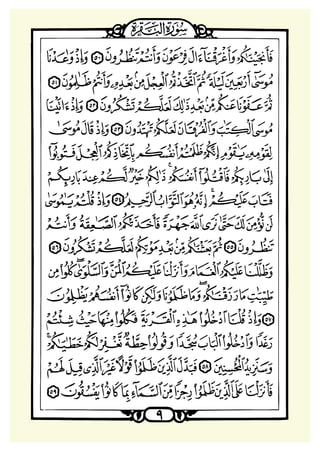 سُورَةُ البَقَرَةِ
فَأَنجَيْنَٰكُمْ وَأَغْرَقْنَآ ءَالَ فِرْعَوْنَ وَأَنتُمْ تَنظُرُونَ ٥٠ وَإِذْ وَٰعَدْنَا
مُوسَىٰٓ أَرْبَعِينَ لَيْلَةً ثُمَّ ٱتَّخَذْتُمُ ٱلْعِجْلَ مِنۢ بَعْدِهِۦ وَأَنتُمْ ظَٰلِمُونَ ٥١
ثُمَّ عَفَوْنَا عَنكُم مِّنۢ بَعْدِ ذَٰلِكَ لَعَلَّكُمْ تَشْكُرُونَ ٥٢ وَإِذْ ءَاتَيْنَا
مُوسَى ٱلْكِتَٰبَ وَٱلْفُرْقَانَ لَعَلَّكُمْ تَهْتَدُونَ ٥٣ وَإِذْ قَالَ مُوسَىٰ
لِقَوْمِهِۦ يَٰقَوْمِ إِنَّكُمْ ظَلَمْتُمْ أَنفُسَكُم بِٱتِّخَاذِكُمُ ٱلْعِجْلَ فَتُوبُوٓا۟
إِلَىٰ بَارِئِكُمْ فَٱقْتُلُوٓا۟ أَنفُسَكُمْ ذَٰلِكُمْ خَيْرٌ لَّكُمْ عِندَ بَارِئِكُمْ
فَتَابَ عَلَيْكُمْ إِنَّهُۥ هُوَ ٱلتَّوَّابُ ٱلرَّحِيمُ ٥٤ وَإِذْ قُلْتُمْ يَٰمُوسَىٰ
لَن نُّؤْمِنَ لَكَ حَتَّىٰ نَرَى ٱللَّهَ جَهْرَةً فَأَخَذَتْكُمُ ٱلصَّٰعِقَةُ وَأَنتُمْ
تَنظُرُونَ ٥٥ ثُمَّ بَعَثْنَٰكُم مِّنۢ بَعْدِ مَوْتِكُمْ لَعَلَّكُمْ تَشْكُرُونَ ٥٦
وَظَلَّلْنَا عَلَيْكُمُ ٱلْغَمَامَ وَأَنزَلْنَا عَلَيْكُمُ ٱلْمَنَّ وَٱلسَّلْوَىٰ كُلُوا۟ مِن
طَيِّبَٰتِ مَا رَزَقْنَٰكُمْ وَمَا ظَلَمُونَا وَلَٰكِن كَانُوٓا۟ أَنفُسَهُمْ يَظْلِمُونَ
٥٧ وَإِذْ قُلْنَا ٱدْخُلُوا۟ هَٰذِهِ ٱلْقَرْيَةَ فَكُلُوا۟ مِنْهَا حَيْثُ شِئْتُمْ
رَغَدًا وَٱدْخُلُوا۟ ٱلْبَابَ سُجَّدًا وَقُولُوا۟ حِطَّةٌ نَّغْفِرْ لَكُمْ خَطَٰيَٰكُمْ
وَسَنَزِيدُ ٱلْمُحْسِنِينَ ٥٨ فَبَدَّلَ ٱلَّذِينَ ظَلَمُوا۟ قَوْلًا غَيْرَ ٱلَّذِى قِيلَ لَهُمْ
فَأَنزَلْنَا عَلَى ٱلَّذِينَ ظَلَمُوا۟ رِجْزًا مِّنَ ٱلسَّمَآءِ بِمَا كَانُوا۟ يَفْسُقُونَ ٥٩
٩